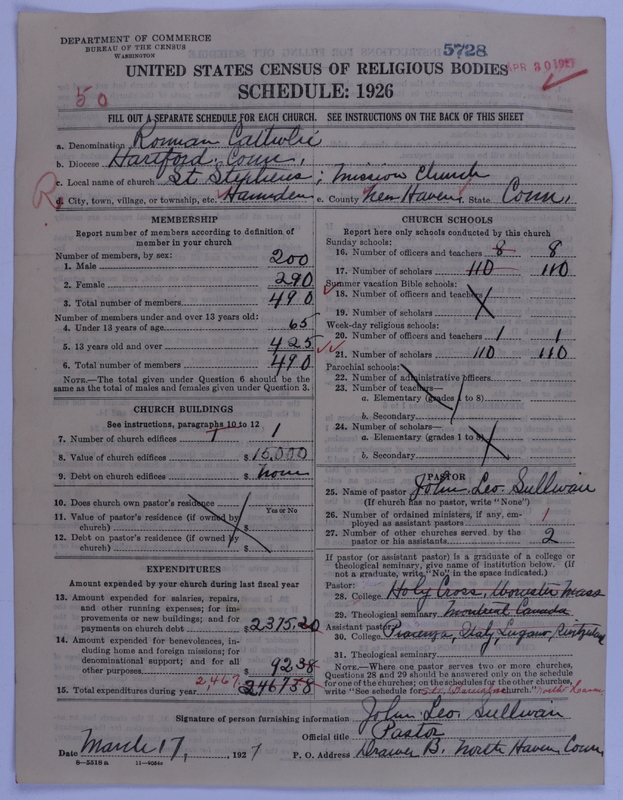 DEPARTMENT OF COMMERCE
BUREAU OF THE CENSUS
WASHINGTON
5728
APR 30 1927
UNITED STATES CENSUS OF RELIGIOUS BODIES
SCHEDULE: 1926
50
FILL OUT A SEPARATE SCHEDULE FOR EACH CHURCH. SEE INSTRUCTIONS ON THE BACK OF THIS SHEET
a. Denomination Roman Catholic
b. Diocese Hartford, Conn,
c. Local name of church St Stephens; Mission Church
d. City, town, village, or township, etc. Hamden e. County New Haven, State Conn,
MEMBERSHIP
Report number of members according to definition of member in your church
Number of members, by sex:
1. Male 200
2. Female 290
3. Total number of members 490
Number of members under and over 13 years old:
4. Under 13 years of age 65
5. 13 years old and over 425
6. Total number of members 490
NOTE.—The total given under Question 6 should be the same as the total of males and females given under Question 3.
CHURCH BUILDINGS
See instructions, paragraphs 10 to 12
7. Number of church edifices 1 1
8. Value of church edifices $ 15,000
9. Debt on church edifices $ none
10. Does church own pastor's residence
Yes or No
11. Value of pastor's residence (if owned by church) $
12. Debt on pastor's residence (if owned by church) $
EXPENDITURES
Amount expended by your church during last fiscal year
13. Amount expended for salaries, repairs, and other running expenses; for improvements or new buildings; and for payments on church debt $ 2375.20
14. Amount expended for benevolences, including home and foreign missions; for denominational support; and for all other purposes $ 92.38
2,467
15. Total expenditures during year $ 2467.58
CHURCH SCHOOLS
Report here only schools conducted by this church
Sunday schools:
16. Number of officers and teachers 8 8
17. Number of scholars 110 110
Summer vacation Bible schools:
18. Number of officers and teachers
19. Number of scholars
Week-day religious schools:
20. Number of officers and teachers 1 1
21. Number of scholars 110 110
Parochial schools:
22. Number of administrative officers
23. Number of teachers—
a. Elementary (grades 1 to 8)
b. Secondary
24. Number of scholars—
a. Elementary (grades 1 to 8)
b. Secondary
PASTOR
25. Name of pastor John Leo. Sullivan
(If church has no pastor, write "None")
26. Number of ordained ministers, if any, employed as assistant pastors 1
27. Number of other churches served by the pastor or his assistants 2
If pastor (or assistant pastor) is a graduate of a college or theological seminary, give name of institution below. (If not a graduate, write "No" in the space indicated.)
Pastor:
28. College Holy Cross, Worcester Mass
29. Theological seminary Montreal Canada
Assistant pastor:
30. College Piacenza, Italy, Lugano, Switzerland
31. Theological seminary
NOTE.—Where one pastor serves two or more churches, Questions 28 and 29 should be answered only on the schedule for one of the churches; on the schedules for the other churches, write "See schedule for church." North Haven
Signature of person furnishing information John Leo. Sullivan
Official title Pastor
Date March 17, 1927 P. O. Address Drawer B. North Haven, Conn,
8—5518a 11—9054r